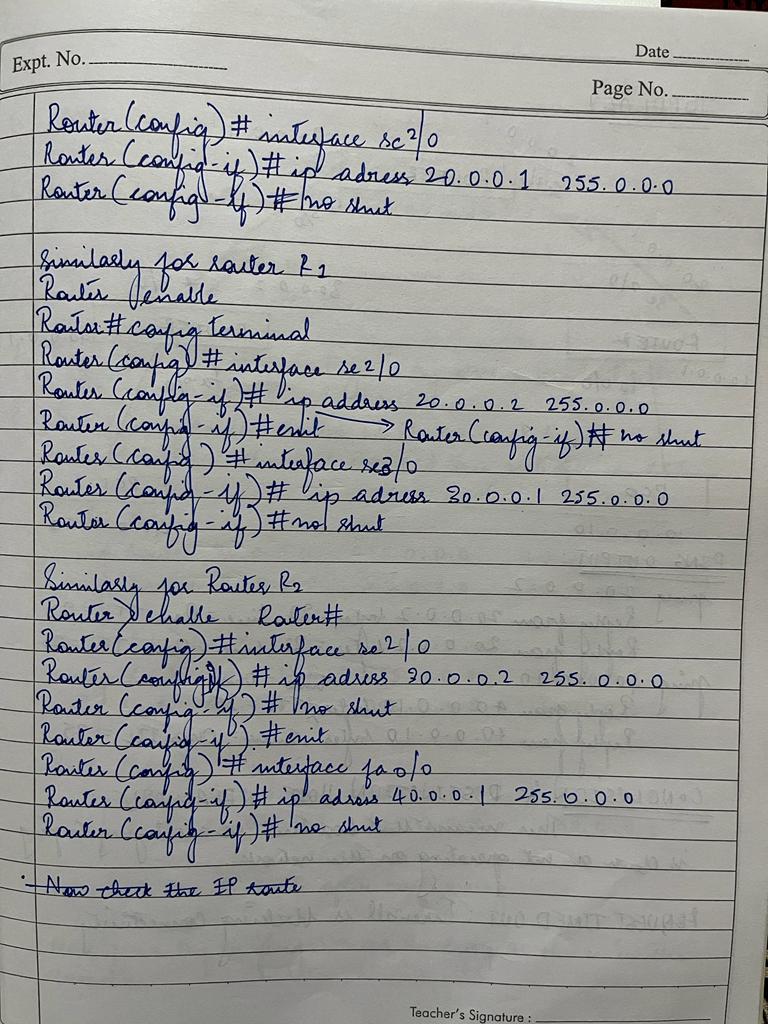 Expt. No.
Date
Page No.
Router (config) # interface se2/0
Router (config-if) # ip adress 20.0.0.1 255.0.0.0
Router (config-if) # no shut
Similarly for router R1
Router enable
Router# config terminal
Router (config) # interface se2/0
Router (config-if) # ip address 20.0.0.2 255.0.0.0
Router (config-if) # exit → Router (config-if) # no shut
Router (config) # interface se3/0
Router (config-if) # ip adress 30.0.0.1 255.0.0.0
Router (config-if) # no shut
Similarly for Router R2
Router> enable Router#
Router (config) # interface se2/0
Router (config-if) # ip adress 30.0.0.2 255.0.0.0
Router (config-if) # no shut
Router (config-if) # exit
Router (config) # interface fa0/0
Router (config-if) # ip adress 40.0.0.1 255.0.0.0
Router (config-if) # no shut
Now check the IP route
Teacher's Signature :